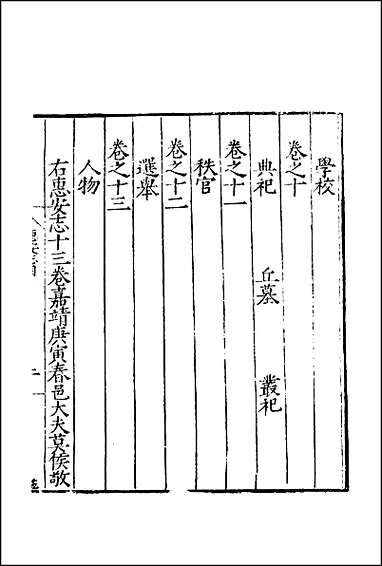 學校
卷之十
典祀 丘墓 叢祀
卷之十一
秩官
卷之十二
選舉
卷之十三
人物
右惠安志十三卷嘉靖庚寅春邑大夫莫侯敬